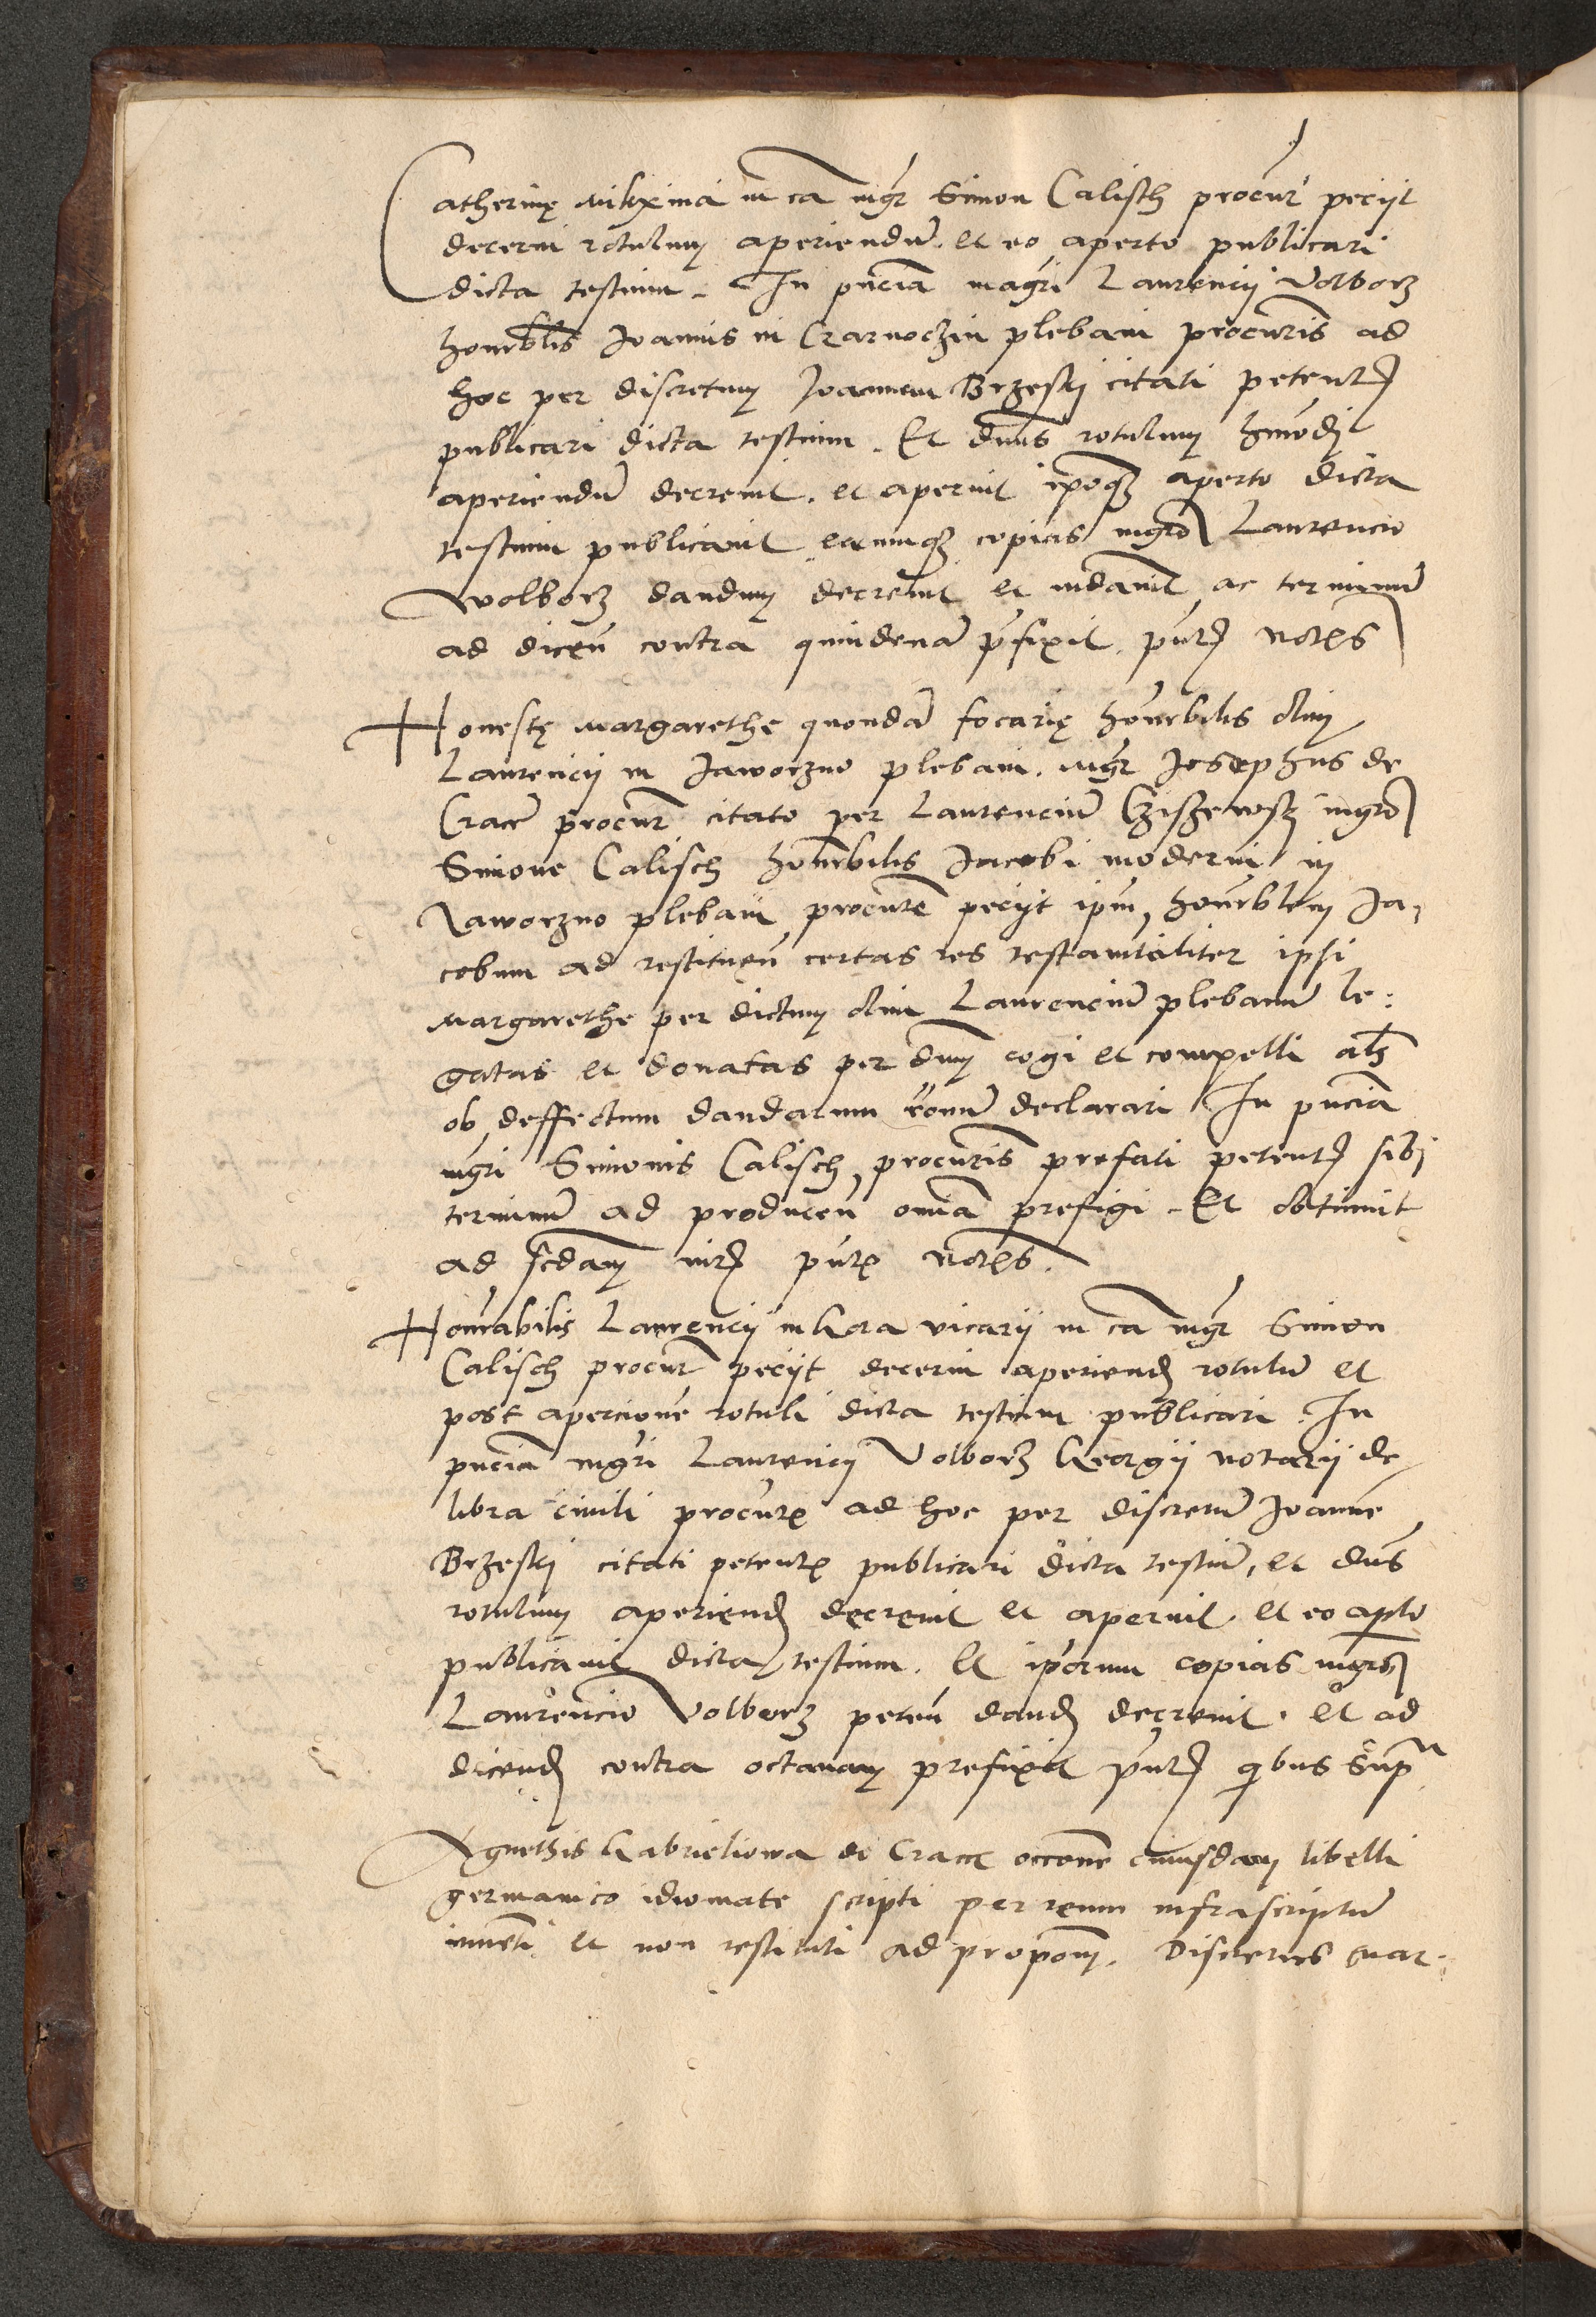 Catherinę in ca mgr Simon Calisch procur peciit
decerni rotulum aperiendu. et eo aperto publicari
dicta testium. In pncia magri Laurencii Volborz
honrblis Joannis in Czarnoczin plebani procuris ad
hoc per discretum Joannem Brzeski citati petent
publicari dicta testium. Et dnus rotulum hmodi
aperiendu decrevit. et aperuit ipoqz aperto dicta
testium publicavit earumqz copias mgro Laurencio
Wolborz dandum decrevit et mdavit ac terminu
ad dicen contra quindena pfixit. pntx notxs
Honestę Margarethe quonda focarię honrbilis olim
Laurencii in Jaworzno plebani. mgr Josephus de
Crace procur citato per Laurenciu mgro
Simone Calisch honrbilis Jacobi moderni in
Jaworzno plebani procure peciit ipm honrblem Ja-
cobum ad restituen certas res testamtaliter ipsi
Margarethe per dictum olim Laurenciu plebanu le-
gatas et donatas per dnm cogi et compelli alz
ob deffectum dandarum ronu declarari In pncia
mgri Simonis Calisch procuris prefati petent sibi
terminu ad producen omia prefigi. Et obtinuit
ad scdam jurx pntx notxs.
Honrabilis Laurencii in Gora vicarii in ca mgr Simon
Calisch procur peciit decerni aperiend rotulu et
post apercione rotuli dicta testium publicari. In
pncia mgri Laurencii Volborz Georgii notarii de
libra civili procurx ad hoc per discretu Joanne
Brzeski citati petentx publicari dicta testiu, et dns
rotulum aperiend decrevit et aperuit. et eo apto
publicavit dicta testium. Et iporum copias mgro
Laurencio Volborz peten dand decrevit. et ad
dicend contra octavam prefixit pntx qbus supra
Agnethis Gabrielowa de Cracc occone cuiusdam libelli
germanico idiomate scripti per reum infrascriptu
inventi et non restituti ad propom. Discretus Mar-